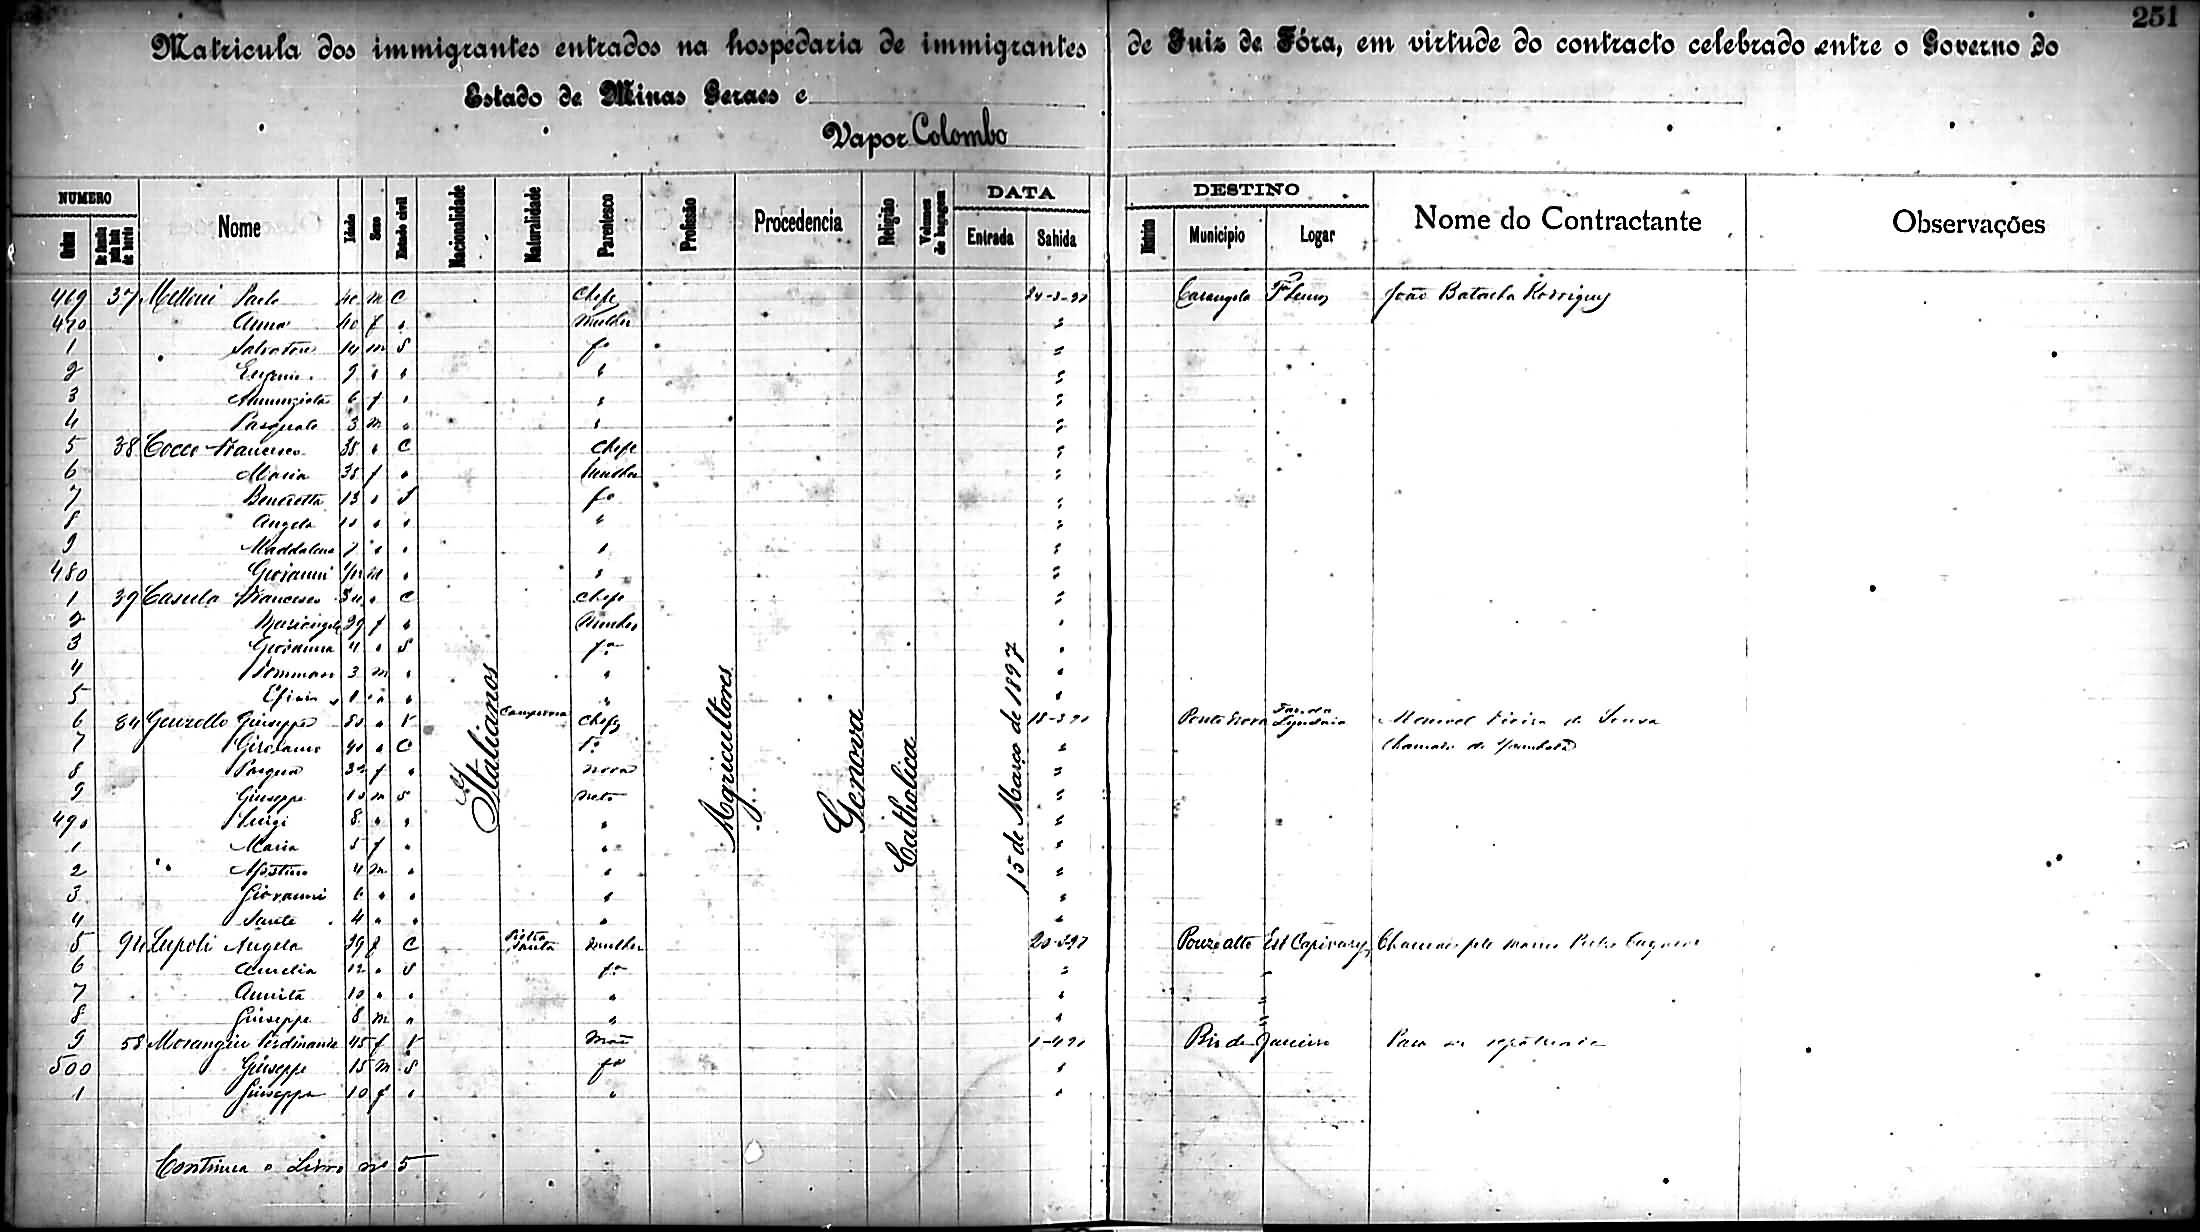 251
Matricula dos immigrantes entrados na hospedaria de immigrantes de Juiz de Fóra, em virtude do contracto celebrado entre o Governo do
Estado de Minas Geraes e
Vapor Colombo
NUMERO DATA DESTINO
Ordem Nome Idade Sexo Estado civil Nacionalidade Naturalidade Parentesco Profissão Procedencia Religião Volumes de bagagem Entrada Sahida Districto Municipio Logar Nome do Contractante Observações
Italianos
Agricultores
Genova
Catholica
15 de Março de 1897
469 37 Paolo 40 m C Chefe Carangola João Baptista Rodrigues
470 Anna 40 f " Mulher "
1 Salvatore 14 m S fo "
2 Eugenio 9 " " " "
3 Annunziata 6 f " " "
4 Pasquale 3 m " " "
5 38 Cocco Francesco 38 " C Chefe "
6 Maria 38 f " Mulher "
7 Benedetta 13 " S fa "
8 Angela 10 " " " "
9 Maddalena 7 " " " "
480 Giovanni m " " "
1 39 Casula Francesco 34 " C Chefe "
2 Mariangela 29 f " Mulher "
3 Giovanna 4 " S fa "
4 Tommaso 3 m " " "
5 Efisio 1 " " " "
6 84 Giuseppe 80 " V Chefe 18-3-97 Ponte Nova Manoel Vieira de Souza
7 Girolamo 40 " C fo " Chamado de
8 Pasqua 32 f " nora "
9 Giuseppe 10 m S neto "
490 Luigi 8 " " " "
1 Maria 5 f " " "
2 Agostino 4 m " " "
3 Giovanni 6 " " " "
4 Sante 4 " " " "
5 94 Lupoli Angela 39 f C Pietra Santa mulher 20-3-97 Pouzo alto Est Capivary Chamado pelo marido Pietro
6 Amelia 12 " S fa "
7 10 " " " "
8 Giuseppe 8 m " " "
9 58 Ferdinanda 45 f V Mãe 1-4-97 Rio de Janeiro Para ser repatriada
500 Giuseppe 15 m S fo "
1 Giuseppa 10 f " " "
Continua o Livro nº 5